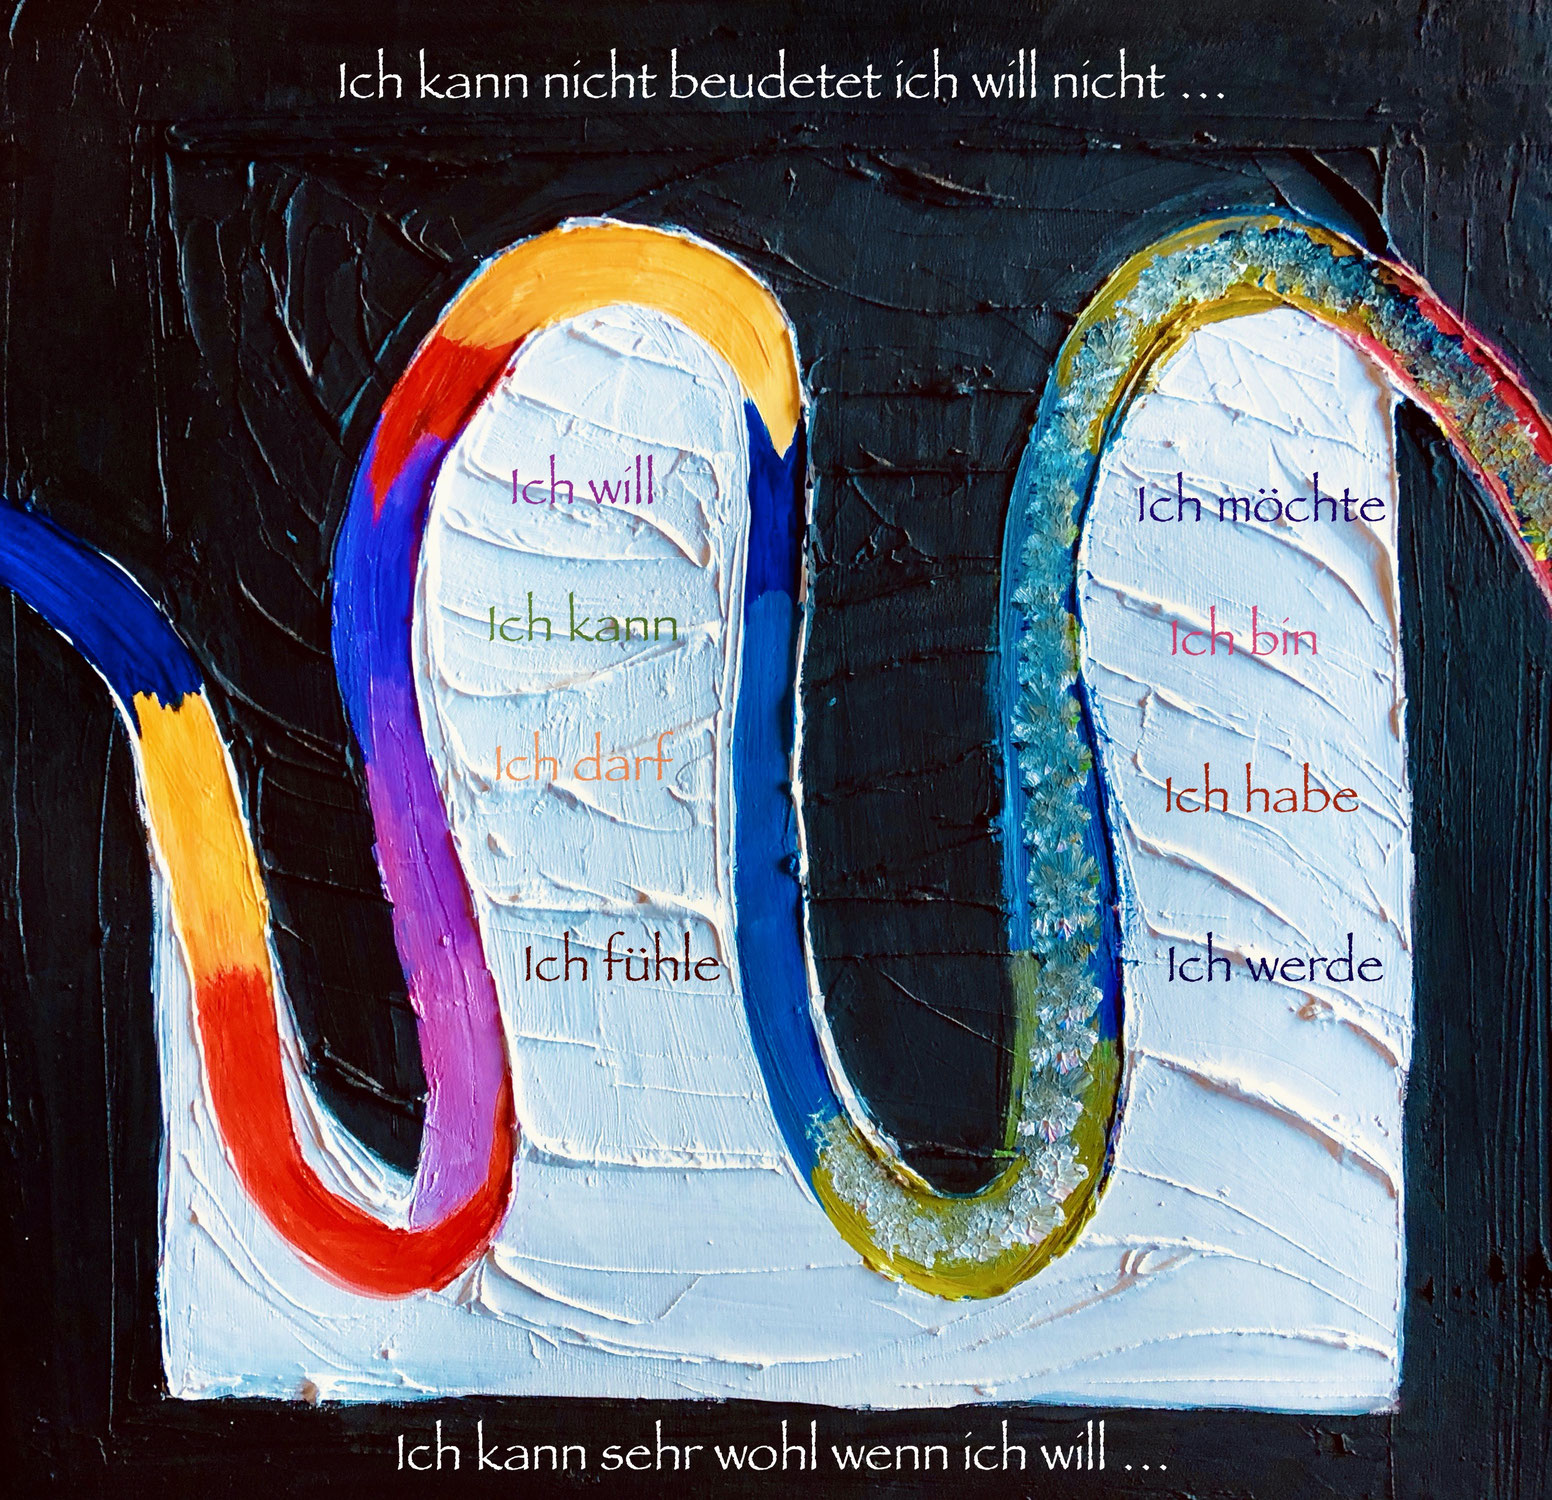 Ich kann nicht beudetet ich will nicht ...
Ich will
Ich kann
Ich darf
Ich fühle
Ich möchte
Ich bin
Ich habe
Ich werde
Ich kann sehr wohl wenn ich will ...